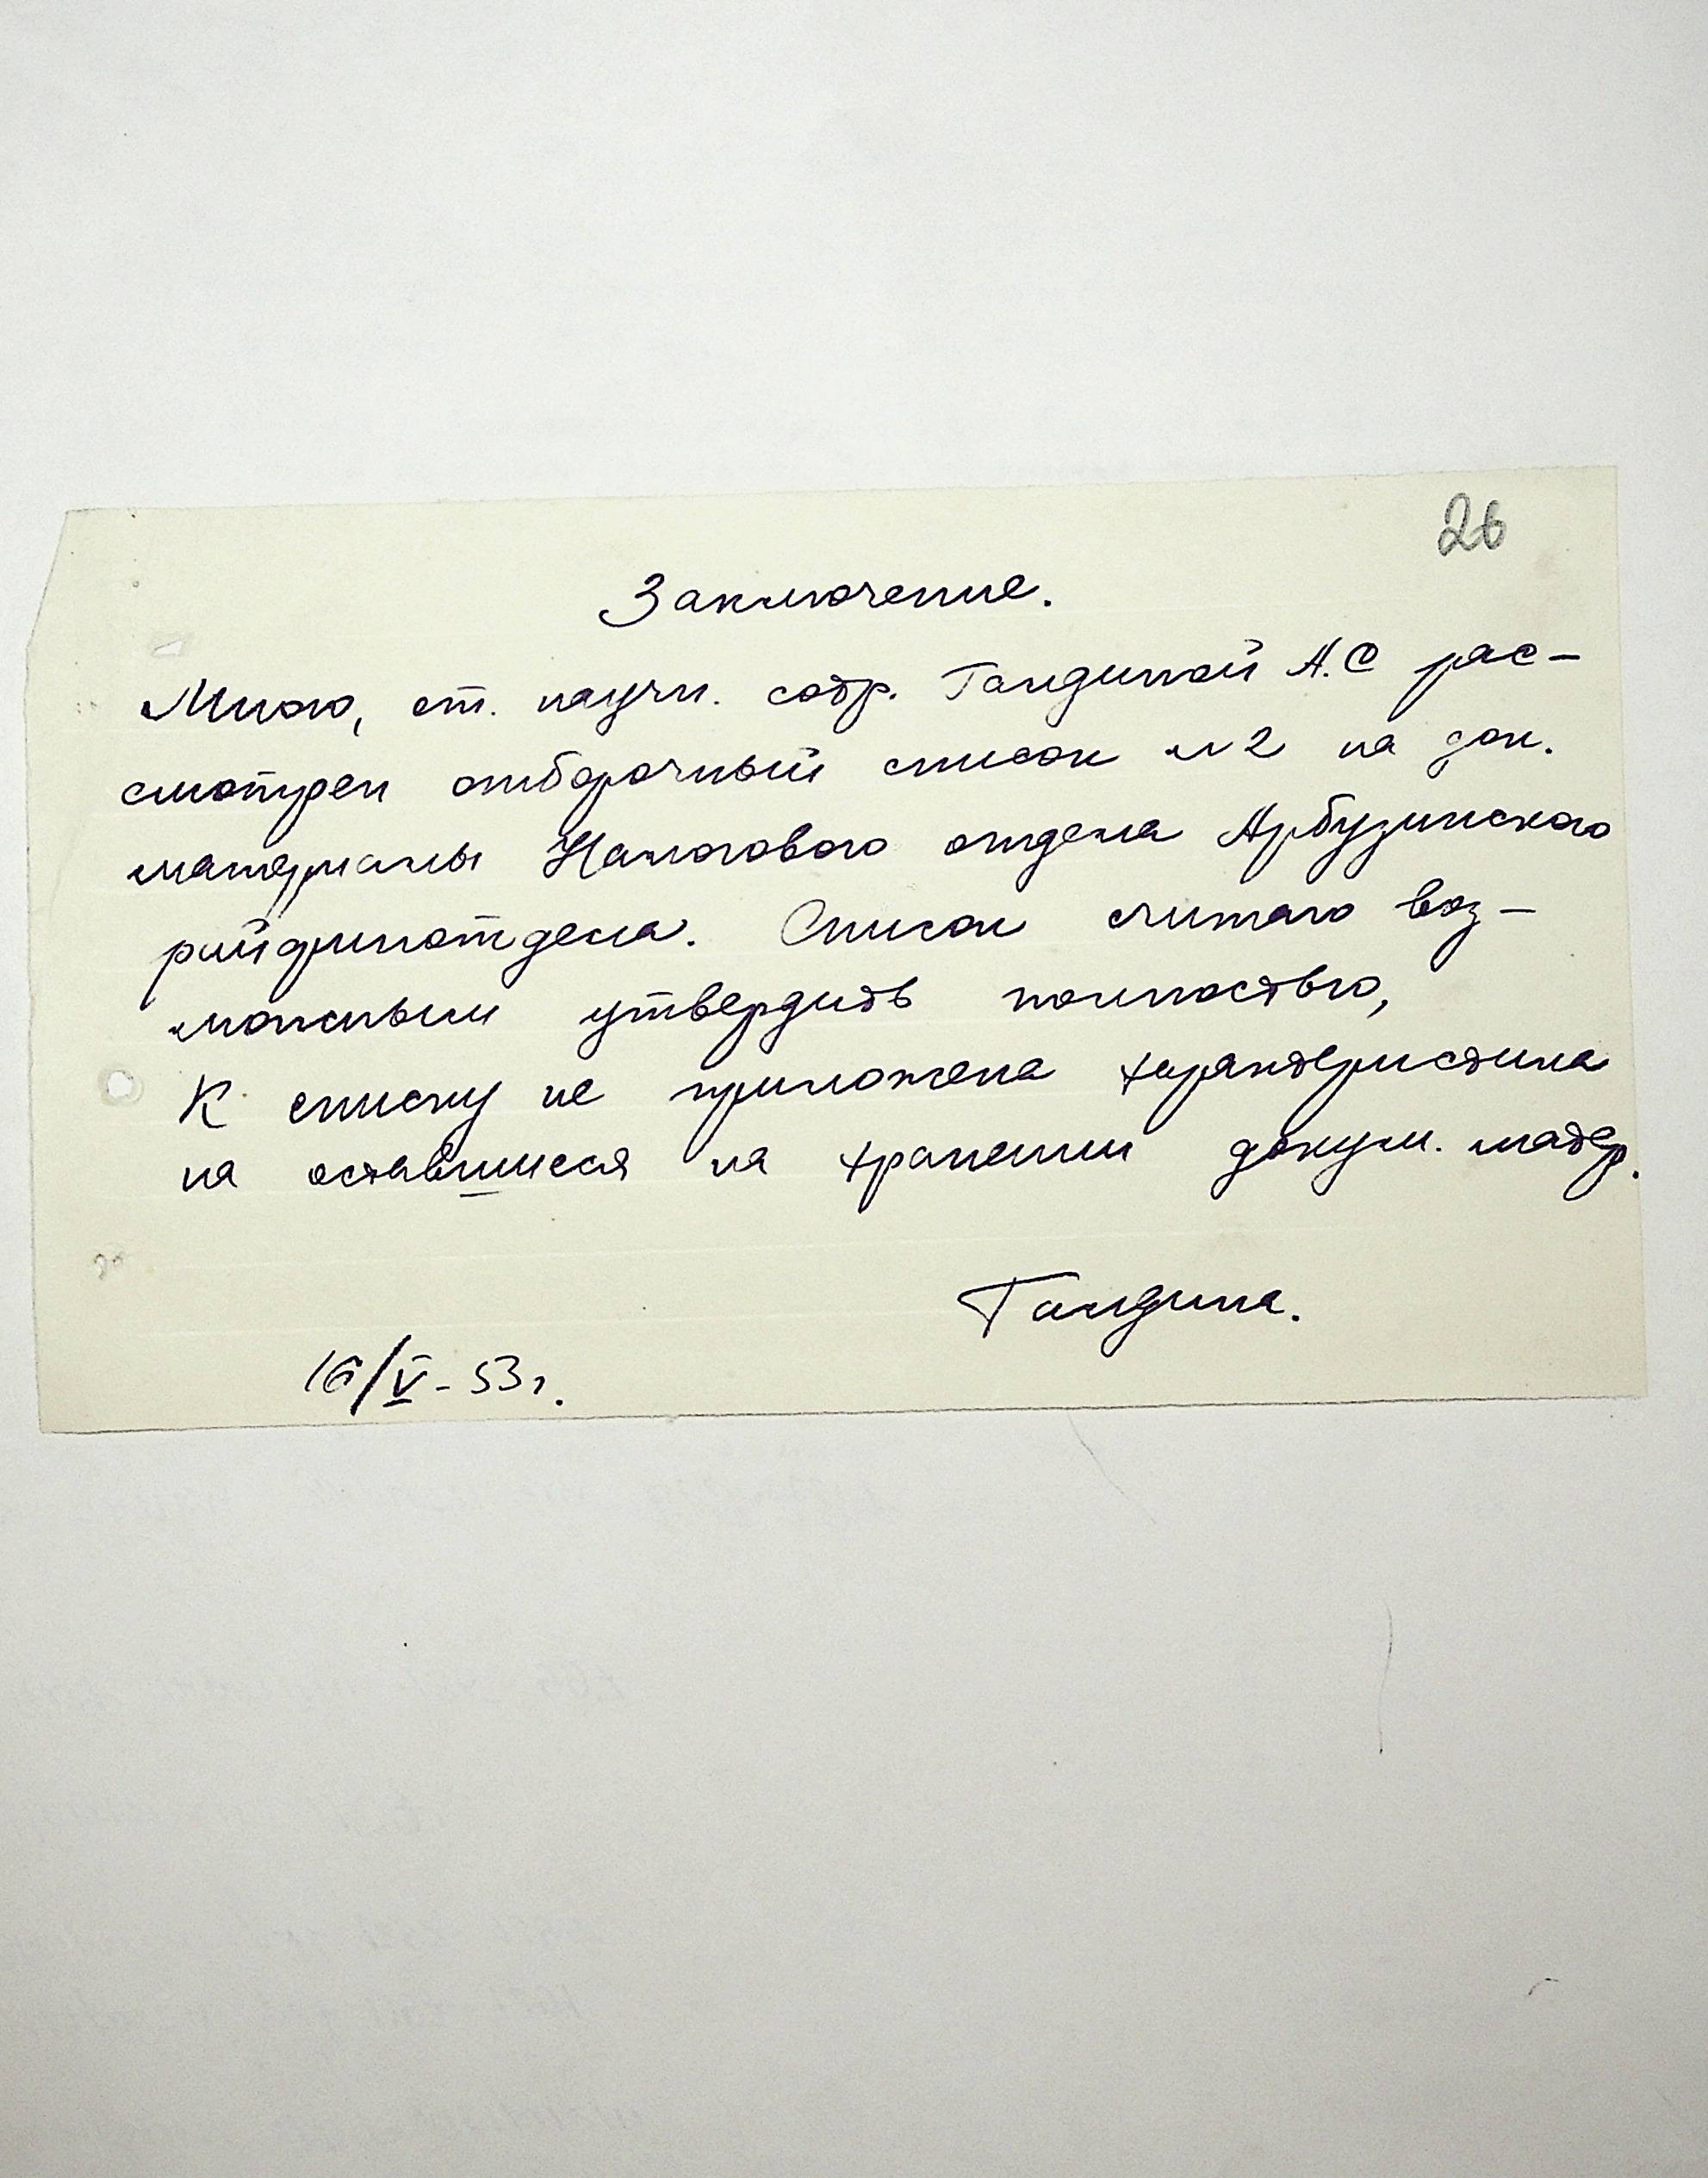 26
Заключение.
Мною, ст. научн. сотр. Гандиной А.С рас-
смотрен отборочный список №2 на док.
материалы Налогового отдела Арбузинского
райфинотдела. Список считаю воз-
можным утвердить полностью,
К списку не приложена характеристика
на оставшиеся на хранении докум. матер.
Гандина.
16/V - 53г.